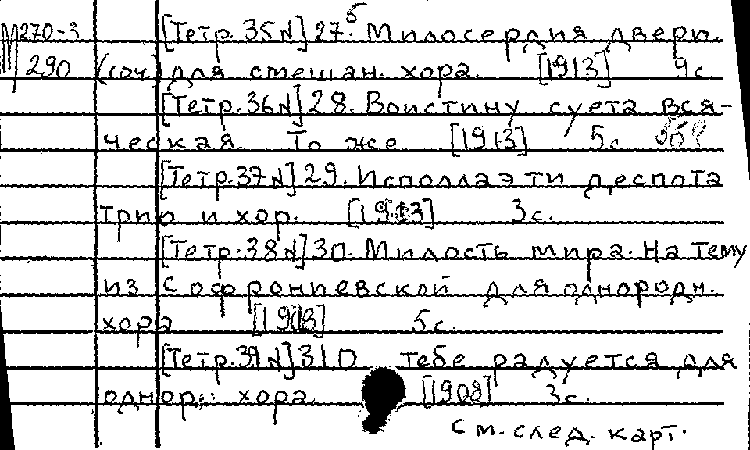 М270-3 [Тетр.35N] 27. Милосердия двери.
290 (соч) для смешан. хора. [1913] 9с
[Тетр.36N] 28. Воистину суета вся-
ческая. То же [1913] 5с.
[Тетр.37N] 29. Исполлаэти деспота
трио и хор. [1913] 3с.
[Тетр.38N] 30. Милость мира. На тему
из Софрониевской для однородн.
хора [1908] 5с.
[Тетр.39N] 31 О тебе радуется для
однор. хора. [1908] 3с.
См. след. карт.